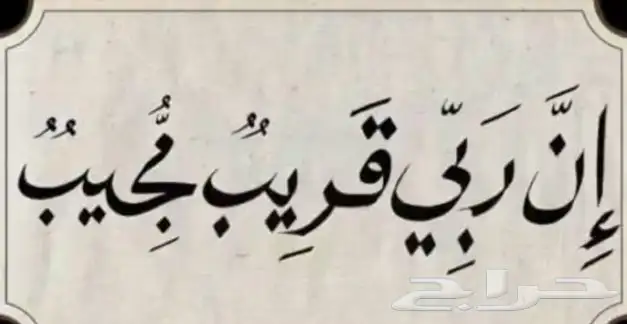 إِنَّ رَبِّي قَرِيبٌ مُّجِيبٌ
حراج